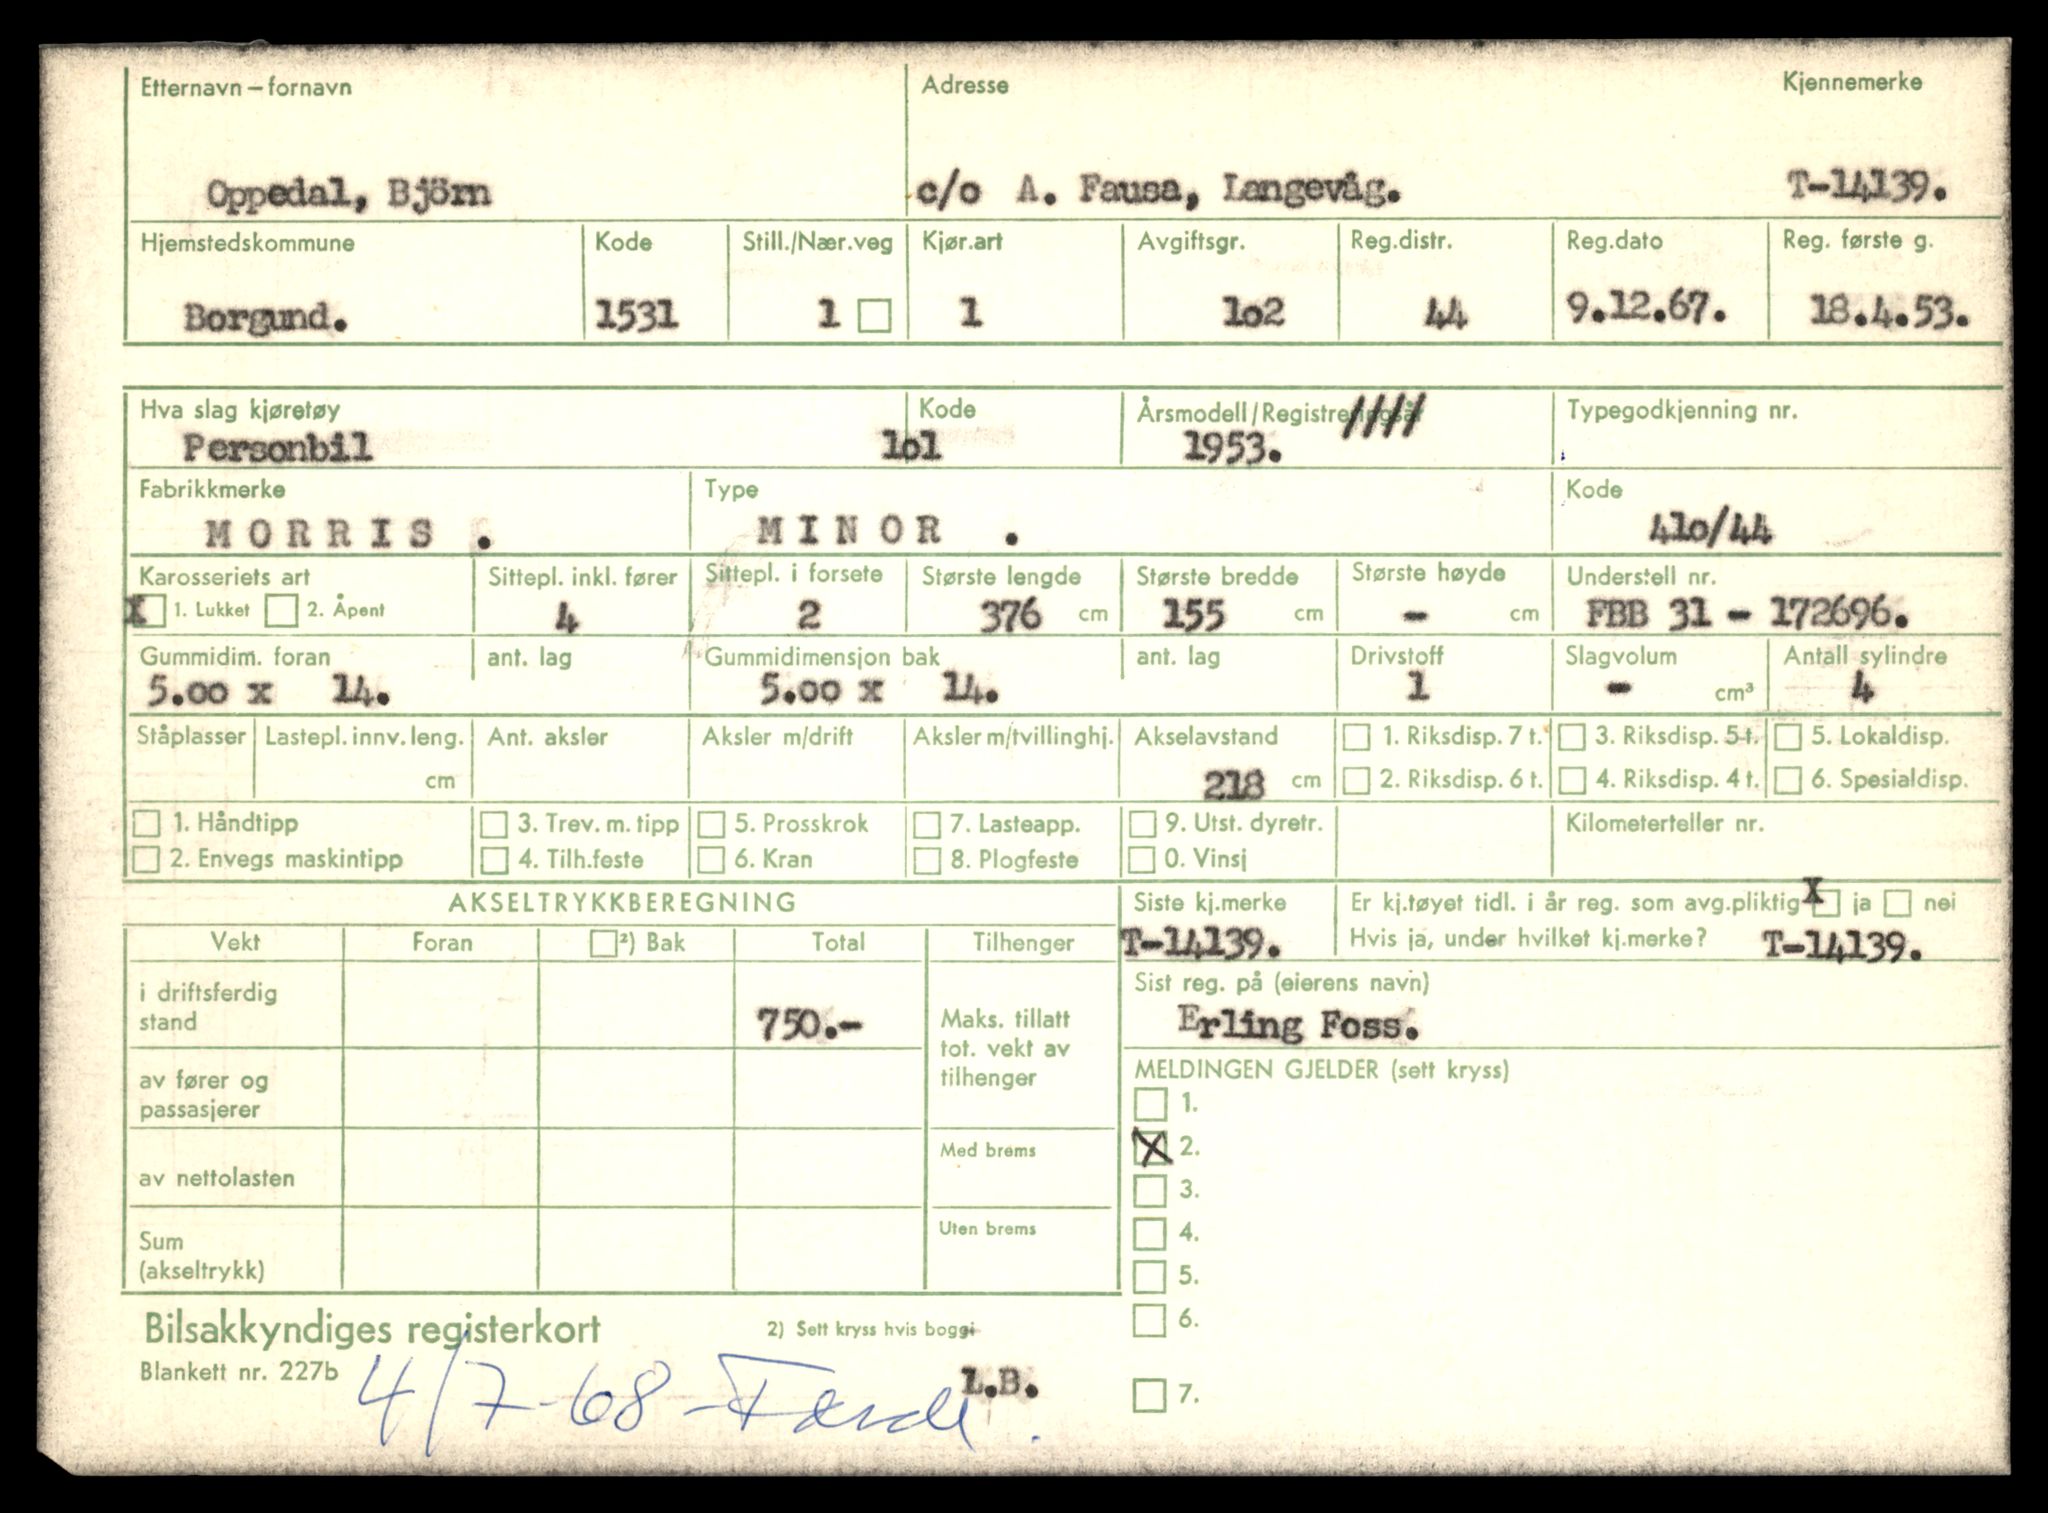 Etternavn – fornavn Adresse Kjennemerke
Oppedal, Björn c/o A. Fausa, Langevåg. T-14139.
Hjemstedskommune Kode Still./Nær.veg Kjør.art Avgiftsgr. Reg.distr. Reg.dato Reg. første g.
Borgund. 1531 1 1 1o2 44 9.12.67. 18.4.53.
Hva slag kjøretøy Kode Årsmodell/Registreringsår //// Typegodkjenning nr.
Personbil 1o1 1953.
Fabrikkmerke Type Kode
MORRIS . MINOR . 41o/44
Karosseriets art Sittepl. inkl. fører Sittepl. i forsete Største lengde Største bredde Største høyde Understell nr.
X 1. Lukket 2. Åpent 4 2 376 cm 155 cm - cm FBB 31 - 172696.
Gummidim. foran ant. lag Gummidimensjon bak ant. lag Drivstoff Slagvolum Antall sylindre
5.oo x 14. 5.oo x 14. 1 - cm³ 4
Ståplasser Lastepl. innv. leng. Ant. aksler Aksler m/drift Aksler m/tvillinghj. Akselavstand 1. Riksdisp. 7 t. 3. Riksdisp. 5 t. 5. Lokaldisp.
cm 218 cm 2. Riksdisp. 6 t. 4. Riksdisp. 4 t. 6. Spesialdisp.
1. Håndtipp 3. Trev. m. tipp 5. Prosskrok 7. Lasteapp. 9. Utst. dyretr. Kilometerteller nr.
2. Envegs maskintipp 4. Tilh.feste 6. Kran 8. Plogfeste 0. Vinsj
AKSELTRYKKBEREGNING Siste kj.merke Er kj.tøyet tidl. i år reg. som avg.pliktig X ja nei
Vekt Foran ²) Bak Total Tilhenger T-14139. Hvis ja, under hvilket kj.merke? T-14139.
i driftsferdig stand 750.- Maks. tillatt tot. vekt av tilhenger Sist reg. på (eierens navn)
Erling Foss.
av fører og passasjerer MELDINGEN GJELDER (sett kryss)
1.
av nettolasten Med brems X 2.
3.
Sum (akseltrykk) Uten brems 4.
5.
Bilsakkyndiges registerkort 2) Sett kryss hvis boggi 6.
Blankett nr. 227b 4/7-68 - Førde. L.B. 7.